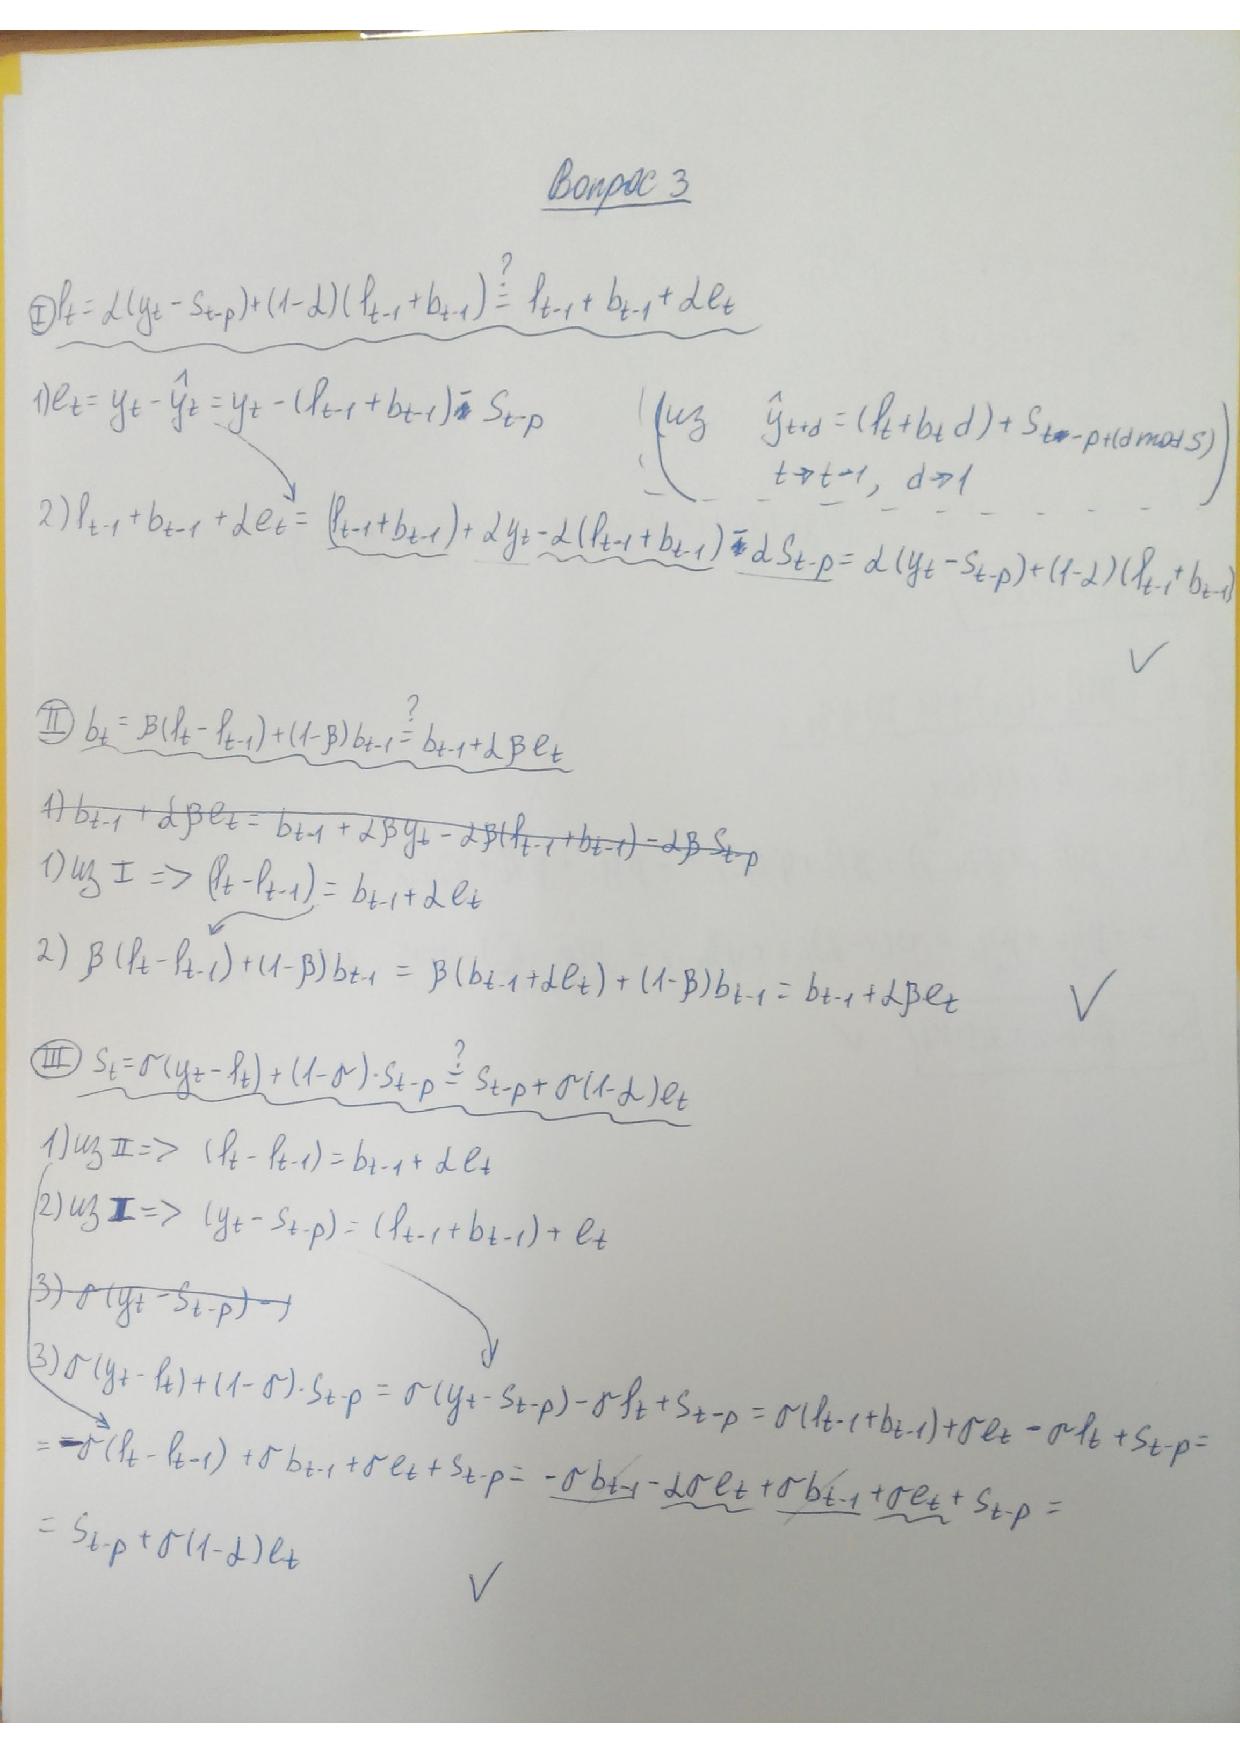 Вопрос 3
I) l_t = α(y_t − s_{t-p}) + (1-α)(l_{t-1} + b_{t-1}) ?= l_{t-1} + b_{t-1} + αe_t
1) e_t = y_t − ŷ_t = y_t − (l_{t-1} + b_{t-1}) − s_{t-p}
(из ŷ_{t+d} = (l_t + b_t d) + s_{t-p+(d mod s)}
t → t-1, d → 1)
2) l_{t-1} + b_{t-1} + αe_t = (l_{t-1} + b_{t-1}) + αy_t − α(l_{t-1} + b_{t-1}) − αs_{t-p} = α(y_t − s_{t-p}) + (1-α)(l_{t-1} + b_{t-1})
✓
II) b_t = β(l_t − l_{t-1}) + (1-β)b_{t-1} ?= b_{t-1} + αβe_t
1) b_{t-1} + αβe_t = b_{t-1} + αβy_t − αβ(l_{t-1} + b_{t-1}) − αβs_{t-p}
1) из I => (l_t − l_{t-1}) = b_{t-1} + αe_t
2) β(l_t − l_{t-1}) + (1-β)b_{t-1} = β(b_{t-1} + αe_t) + (1-β)b_{t-1} = b_{t-1} + αβe_t ✓
III) s_t = γ(y_t − l_t) + (1-γ)·s_{t-p} ?= s_{t-p} + γ(1-α)e_t
1) из II => (l_t − l_{t-1}) = b_{t-1} + αe_t
2) из I => (y_t − s_{t-p}) = (l_{t-1} + b_{t-1}) + e_t
3) γ(y_t − s_{t-p}) −
3) γ(y_t − l_t) + (1-γ)·s_{t-p} = γ(y_t − s_{t-p}) − γl_t + s_{t-p} = γ(l_{t-1} + b_{t-1}) + γe_t − γl_t + s_{t-p} =
= −γ(l_t − l_{t-1}) + γb_{t-1} + γe_t + s_{t-p} = −γb_{t-1} − αγe_t + γb_{t-1} + γe_t + s_{t-p} =
= s_{t-p} + γ(1-α)e_t
✓